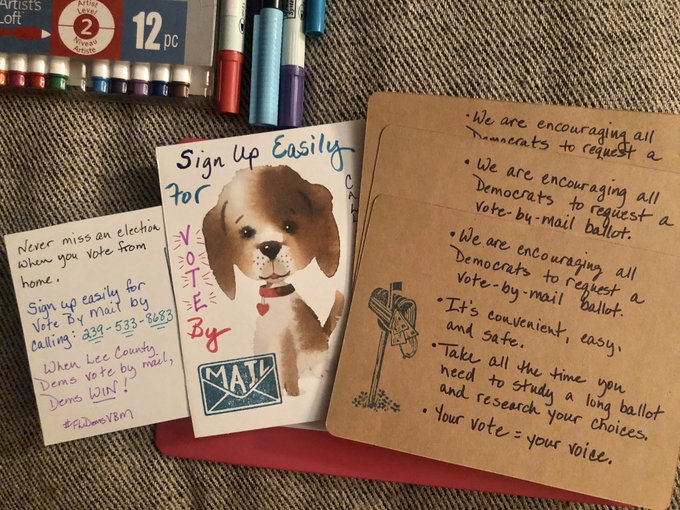 Artist's
Loft
Artist
Level
2
Niveau
Artiste
12 pc
Never miss an election
when you vote from
home.
Sign up easily for
Vote By Mail by
calling: 239-533-8683
When Lee County
Dems vote by mail,
Dems WIN!
#FLDemsVBM
Sign Up Easily
For
VOTE
By
MAIL
• We are encouraging all
Democrats to request a
• We are encouraging all
Democrats to request a
vote-by-mail ballot.
• We are encouraging all
Democrats to request a
vote-by-mail ballot.
• It's convenient, easy,
and safe.
• Take all the time you
need to study a long ballot
and research your choices.
• Your vote = your voice.